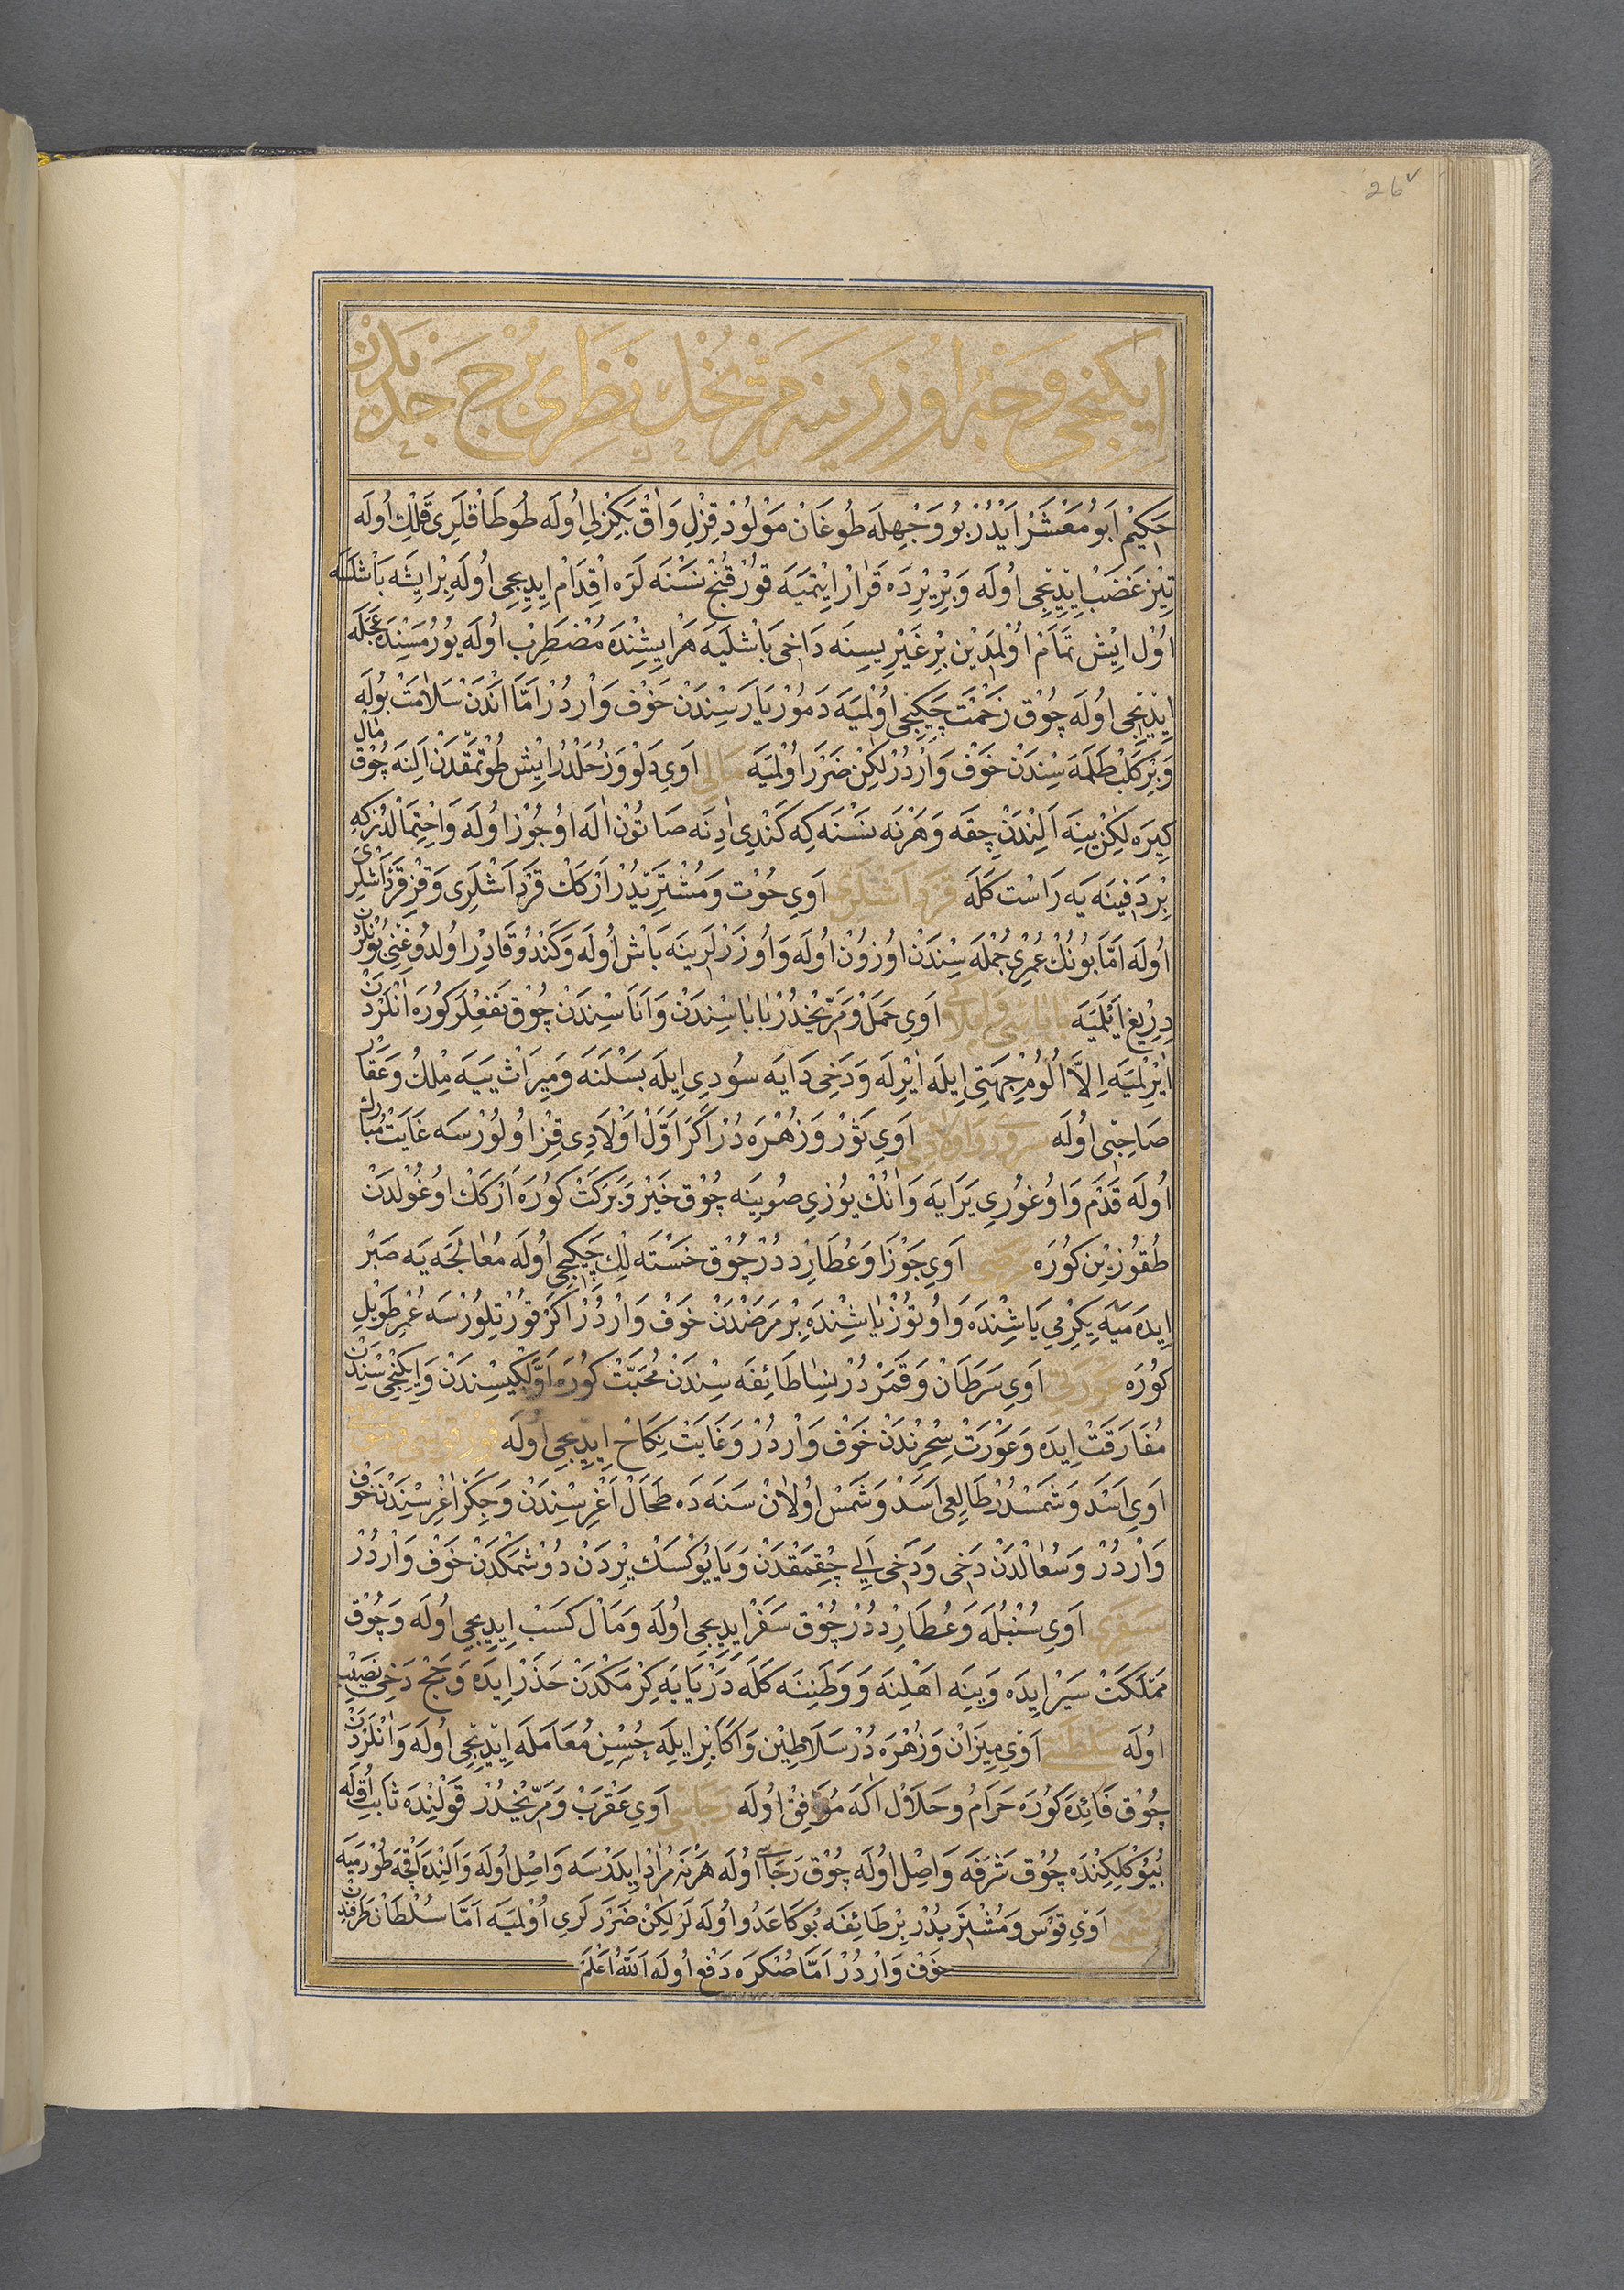 26v
ایکنجی وجه اوزرینه مریخک نظری برج جدیدن
حَکِیْمْ اَبُو مَعْشَرْ اَیْدُرْ بُو وَجْهِلَه طُوغَانْ مَوْلُودْ قِزِلْ وَاقْ بَکِزْلِی اُولَه طُوطَاقْلَرِی قَالِكْ اُولَه
تِیْزْ غَضَبْ اِیْدِیْجِی اُولَه وَبِرْ یِرْدَه قَرَارْ اِیْتْمَیَه قُورْقُنْجْ نَسْنَه لَرَه اِقْدَامْ اِیدِیجِی اُولَه بِرْ اِیشَه بَاشْلَسَه
اُوْل اِیْش تَمَامْ اُوْلْمَدِیْن بِرْ غَیْرِیسِنَه دَاخِی بَاشْلَیَه هَرْ اِیشِنْدَه مُضْطَرِبْ اُولَه یُورُمَسِنْدَه عَجَلَه
اِیْدِیْجِی اُولَه چُوْق زَحْمَتْ چَکِیجِی اُوْلْمَیَه دَمُوْر یَارَسِنْدَنْ خَوْف وَارْدُرْ اَمَّا اَنْدَنْ سَلَامَتْ بُولَه
وَبِرْ کَلْبْ طَلَمَه سِنْدَنْ خَوْف وَارْدُرْ لٰکِنْ ضَرَرْ اُوْلْمَیَه مَالِی اَوِی دَلْوْ وَزُحَلْدُرْ اِیْش طُوْتْمَقْدَنْ اَلِنَه چُوْق مَالْ
کِیرَه لٰکِنْ یِنَه اَلِنْدَنْ چِقَه وَهَرْنَه نَسْنَه کِه کَنْدِی اٰدِنَه صَاتُونْ اٰلَه اوُجُوزْ اُولَه وَاحْتِمَالْدُرْکِه
بِرْ دَفِینَه یَه رَاسْت کَلَه قَرَدَاشْلَرِی اَوِی حُوْت وَمُشْتَرِیدُرْ اَرْکَكْ قَرِنْدَاشْلَرِی وَقِزْ قَرِنْدَاشْلَرِی
اُولَه اَمَّا بُونُكْ عُمْرِی جُمْلَه سِنْدَنْ اوُزُونْ اُولَه وَاُوزَرْلَرِینَه بَاشْ اُولَه وَکَنْدُو قَادِرْ اوُلدُوغِنِی بُونْلَرْدَنْ
دِرِیْغْ اَیْلَمَیَه بَابَاسِی وَ اَوِی حَمَلْ وَمَرِّیخْدُرْ بَابَاسِنْدَنْ وَاَنَاسِنْدَنْ چُوْق نَفْعْلَرْ کُورَه اَنْلَرْدَنْ
اٰیْرِلْمَیَه اِلاَّ اُلُومْ جِهَتِی اِیلَه اٰیْرِلَه وَدَخِی دَایَه سُودِی اِیلَه بَسْلَنَه وَمِیرَاثْ یِیَه مِلْكْ وَعَقَارْ
صَاحِبِی اُولَه اَوِی ثَوْرْ وَزُهْرَه دُرْ اَکَرْ اَوَّلْ اَوْلَادِی قِزْ اوُلوُرْسَه غَایَتْ مُبَارَكْ
اُولَه قَدَم وَاوُغوُرِی یَرَایَه وَاٰنُكْ یوُزِی صوُیِنَه چُوْق خَیْرْ وَبَرَکَتْ کُورَه اَرْکَكْ اوُغوُلدَنْ
طُقُوزِیْن کُورَه مَرَضِی اَوِی جَوْزَا وَعُطَارِددُرْ چُوْق خَسْتَه لِكْ چَکِیجِی اُولَه مُعَالَجَه یَه صَبْر
اِیدَه مَیَه یِکِرْمِی یَاشِنْدَه وَاُوتُوزْ یَاشِنْدَه بِرْ مَرَضْدَنْ خَوْف وَارْدُرْ اَکَرْ قُورْتِلُورْسَه عُمْرِ طَوِیلْ
کُورَه عَوْرَتِی اَوِی سَرَطَانْ وَقَمَرْدُرْ نِسَا طَائِفَه سِنْدَنْ مُحَبَّتْ کُورَه اَوَّلْکِیسِنْدَنْ وَاِیکِنْجِی سِنْدَنْ
مُفَارَقَتْ اِیدَه وَعَوْرَتْ سِحْرِنْدَنْ خَوْف وَارْدُرْ وَغَایَتْ نِکَاحْ اِیدِیجِی اُولَه
اَوِی اَسَدْ وَشَمْسْدُرْ طَالِعِی اَسَدْ وَشَمْسْ اوُلاَنْ سَنَه دَه طَحَالْ اَغْرِسِنْدَنْ وَجِکَرْ اَغْرِسِنْدَنْ خَوْف
وَارْدُرْ وَسُعَالْدَنْ دَخِی وَدَخِی اَلِی چِقْمَقْدَنْ وَیَا یُوکْسَكْ یِرْدَنْ دُوشْمَکْدَنْ خَوْف وَارْدُرْ
سَفَرِی اَوِی سُنْبُلَه وَعُطَارِددُرْ چُوْق سَفَرْ اِیدِیجِی اُولَه وَمَالْ کَسَبْ اِیدِیجِی اُولَه وَچُوْق
مَمْلَکَتْ سَیْر اِیدَه وَیِنَه اَهْلِنَه وَ وَطَنِنَه کَلَه دَرْیَایَه کِرْمَکْدَنْ حَذَرْ اِیدَه وَحَجْ دَخِی نَصِیبْ
اوُلَه سَلْطَنَتِی اَوِی مِیزَانْ وَزُهْرَه دُرْ سَلاَطِیْن وَاَکَابِرْ اِیلَه حُسْنِ مُعَامَلَه اِیْدِیْجِی اُولَه وَاَنْلَرْدَنْ
چُوْق فَائِدَه کُورَه حَرَامْ وَحَلاَلْ اَکَه مُوَافِقْ اُولَه رَجَاسِی اَوِی عَقْرَبْ وَمَرِّیخْدُرْ قَوْلِنْدَه ثَابِتْ اُولَه
بُیُوکْلِکِنْدَه چُوْق شَرَفَه وَاصِلْ اوُلَه چُوْق رَجَاسِی اوُلَه هَرْنَه مُرَادْ اِیدَرْسَه وَاصِلْ اُولَه وَاَلِنْدَه اَقْچَه طُوْرْمَیَه
اَوِی قَوْس وَمُشْتَرِیدُرْ بِرْ طَائِفَه بُوکَا عَدُو اوُلَه لَرْ لٰکِنْ ضَرَرْلَرِی اُوْلْمَیَه اَمَّا سُلْطَانْ طَرَفِنْدَنْ
خَوْف وَارْدُرْ اَمَّا صُنْکرَه دَفْع اُولَه اَللّٰهُ اَعْلَمْ